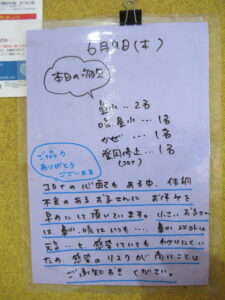 6月9日(木)
本日の病欠
鼻水…2名
咳、鼻水…1名
かぜ…1名
登園停止…1名
(コロナ)
ご協力
ありがとう
ございます
コロナの心配もある中、体調
不良のあるお子さんにお休みを
早めにして頂いています。小さいお子さん
は、鼻水、咳はいつも…、鼻水、咳以外は
元気…と、感染していてもわかりにくい
ため、感染のリスクが高いことは
ご承知おきください。